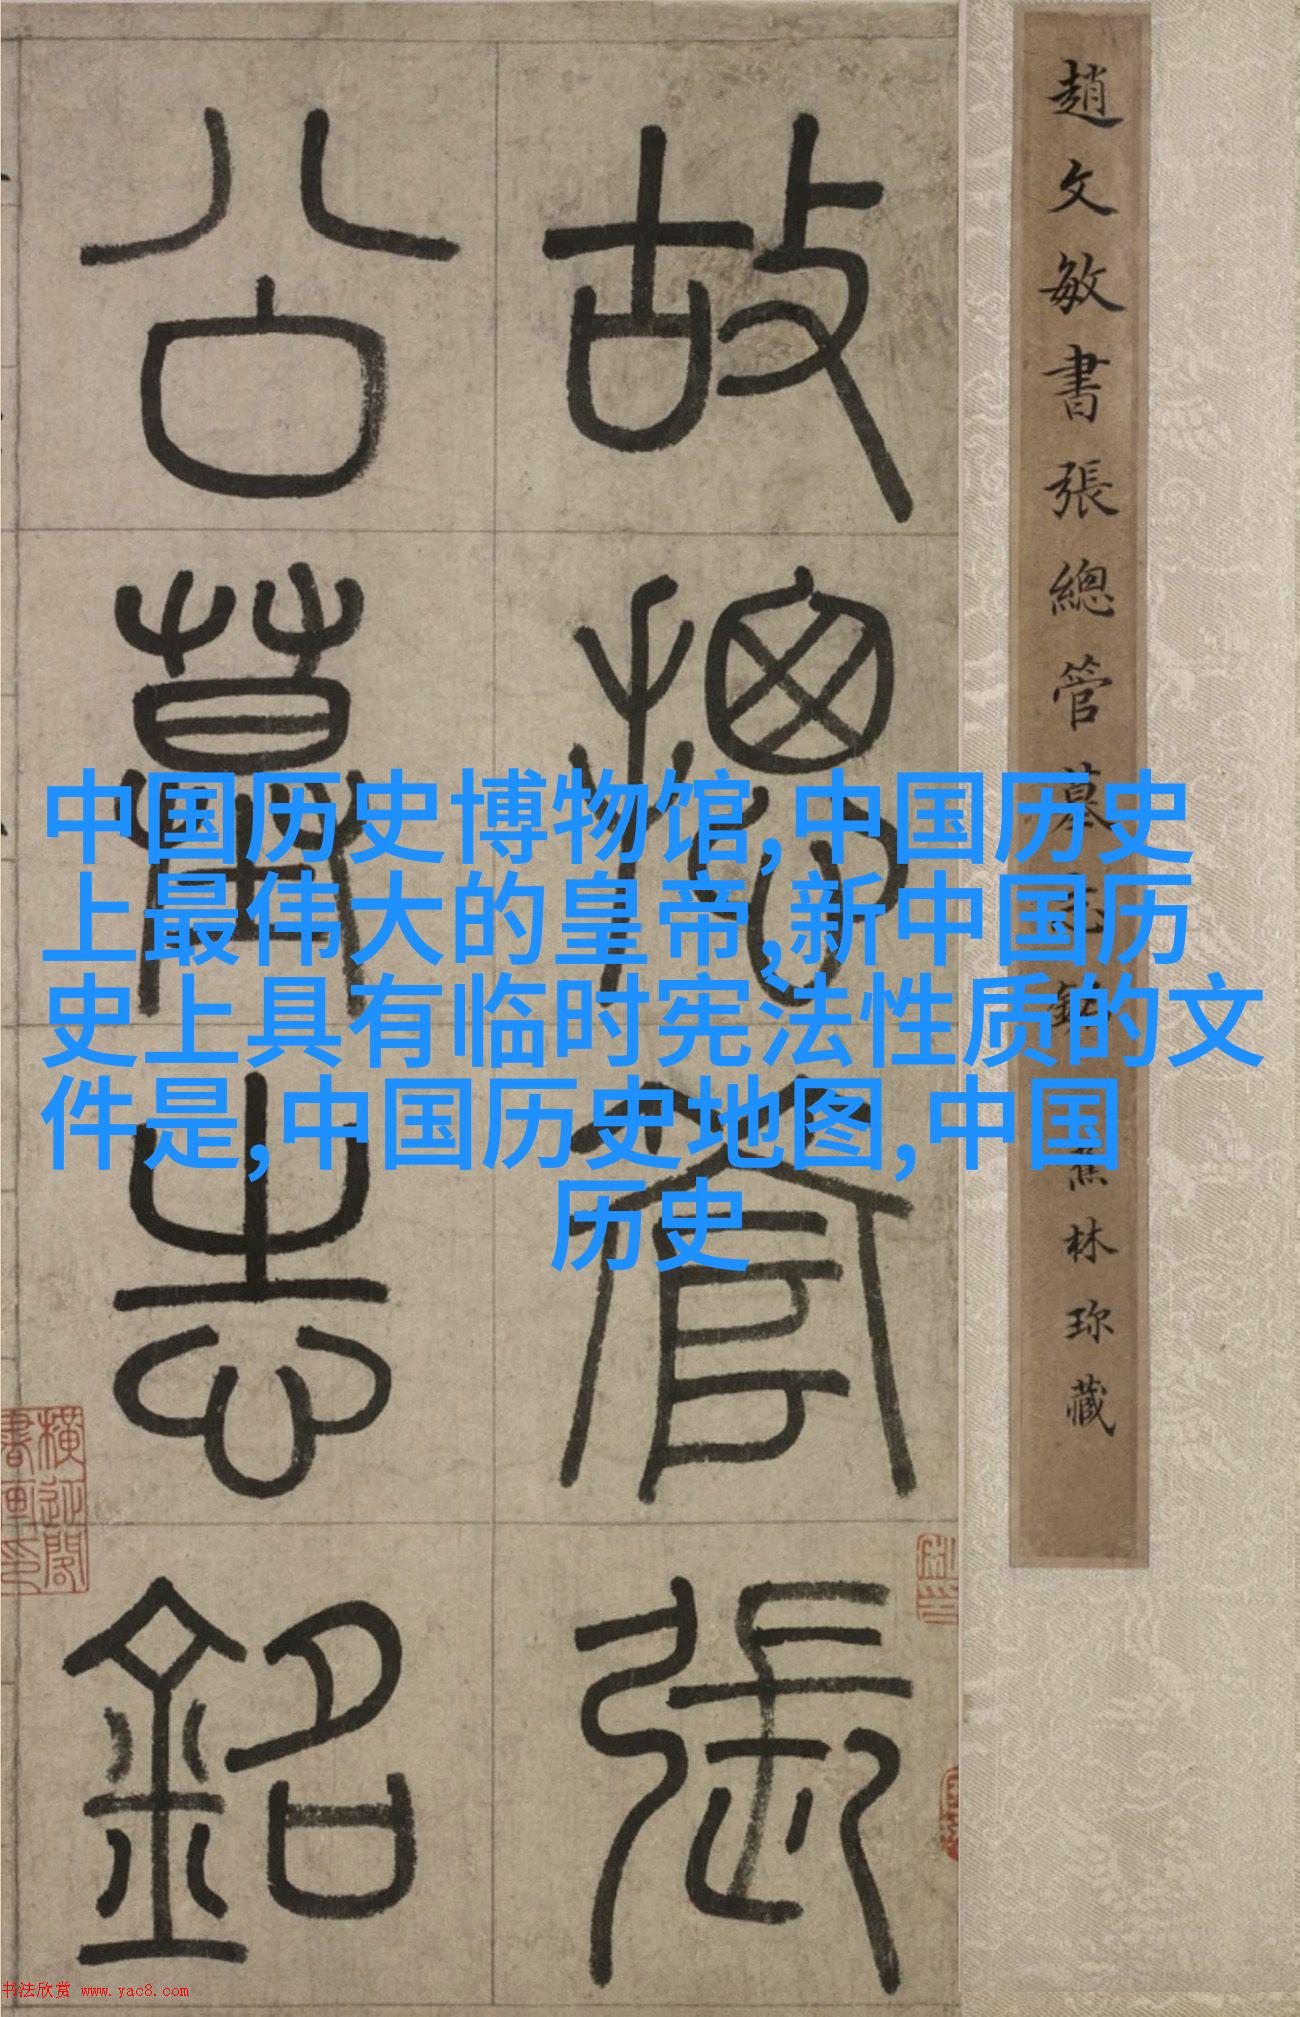 趙文敏書張總管墓志銘 蕉林珎藏
故總管張
公墓志銘
中国历史博物馆,中国历史
上最伟大的皇帝,新中国历
史上具有临时宪法性质的文
件是,中国历史地图,中国
历史
书法欣赏 www.yac8.com